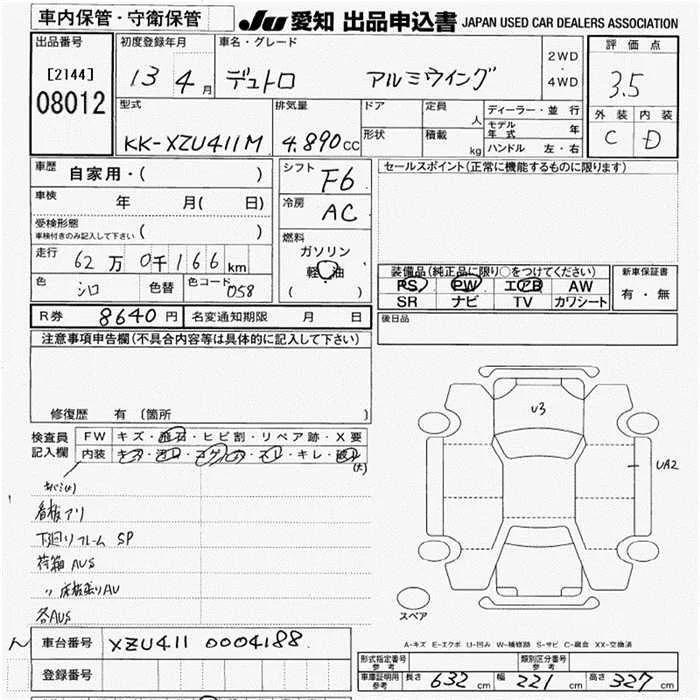 車内保管・守衛保管
JU 愛知 出品申込書 JAPAN USED CAR DEALERS ASSOCIATION
出品番号 [2144] 08012
初度登録年月 13 4月
車名・グレード デュトロ アルミウイング
2WD・4WD
評価点 3.5
外装 C 内装 D
型式 KK-XZU411M
排気量 4.890cc
ドア 形状
定員 人
積載 kg
ディーラー・並行
モデル年式 年
ハンドル 左・右
車歴 自家用・( )
車検 年 月( 日)
受検形態 車検付きのみ記入して下さい ( )
走行 62万0千166km
色 シロ 色替 色コード 058
シフト F6
冷房 AC
燃料 ガソリン 軽油 ( )
セールスポイント(正常に機能するものに限ります)
装備品(純正品に限り○をつけてください)
PS PW エアB AW
SR ナビ TV カワシート
新車保証書 有・無
R券 8640円 名変通知期限 月 日
後日品
注意事項申告欄(不具合内容等は具体的に記入して下さい)
修復歴 有 〔箇所 〕
検査員記入欄
FW キズ・飛石・ヒビ割・リペア跡・X要
内装 キズ・汚れ・コゲ・穴・スレ・キレ・破れ
看板アリ
下回りフレーム SP
荷箱 AUS
〃 床板張りAU
各AUS
U3
UA2
スペア
A-キズ E-エクボ U-凹み W-補修跡 S-サビ C-腐食 XX-交換済
車台番号 XZU411 0004188
登録番号
形式指定番号 参考
類別区分番号 参考
車庫証明用 参考 長さ 632cm 幅 221cm 高さ 327cm